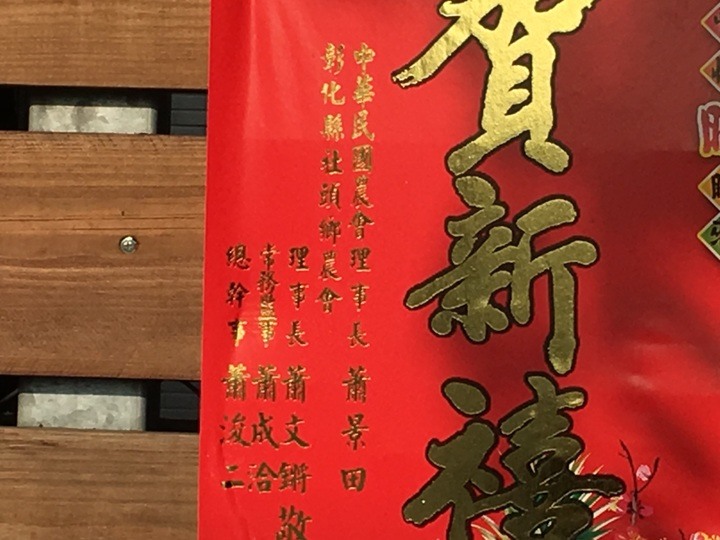 賀新禧
中華民國農會理事長 蕭景田
彰化縣社頭鄉農會
理事長 蕭文鏘
常務監事 蕭成洽
總幹事 蕭浚二
敬